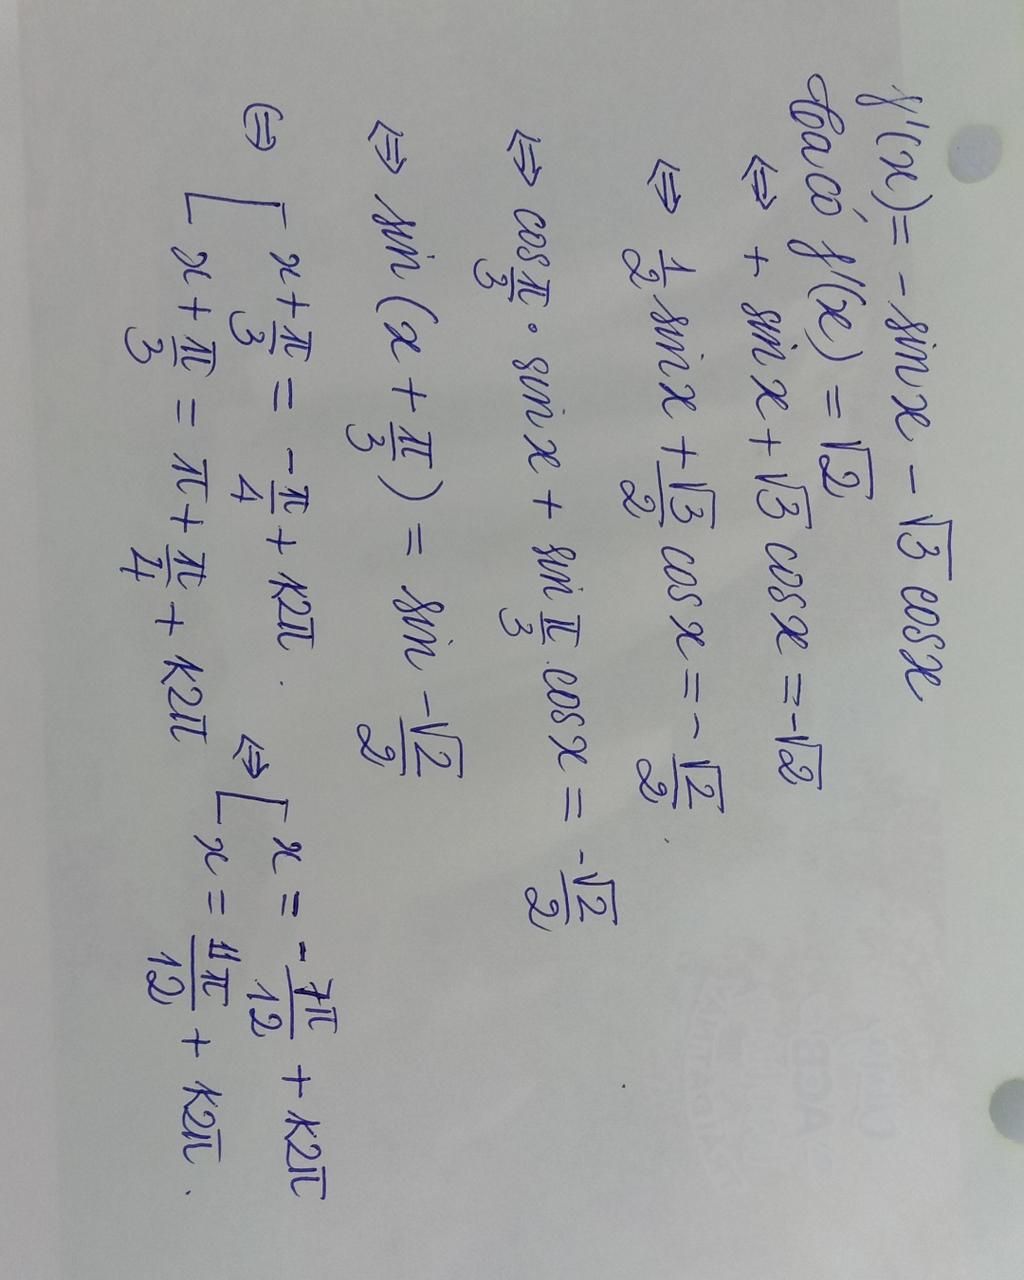 f'(x) = - sin x - √3 cos x
ta có f'(x) = √2
⇔ + sin x + √3 cos x = -√2
⇔ 1/2 sin x + √3/2 cos x = - √2/2
⇔ cos π/3 . sin x + sin π/3 cos x = -√2/2
⇔ sin (x + π/3) = sin -√2/2
⇔ [ x + π/3 = -π/4 + k2π .
x + π/3 = π + π/4 + k2π
⇔ [ x = - 7π/12 + k2π
x = 11π/12 + k2π .